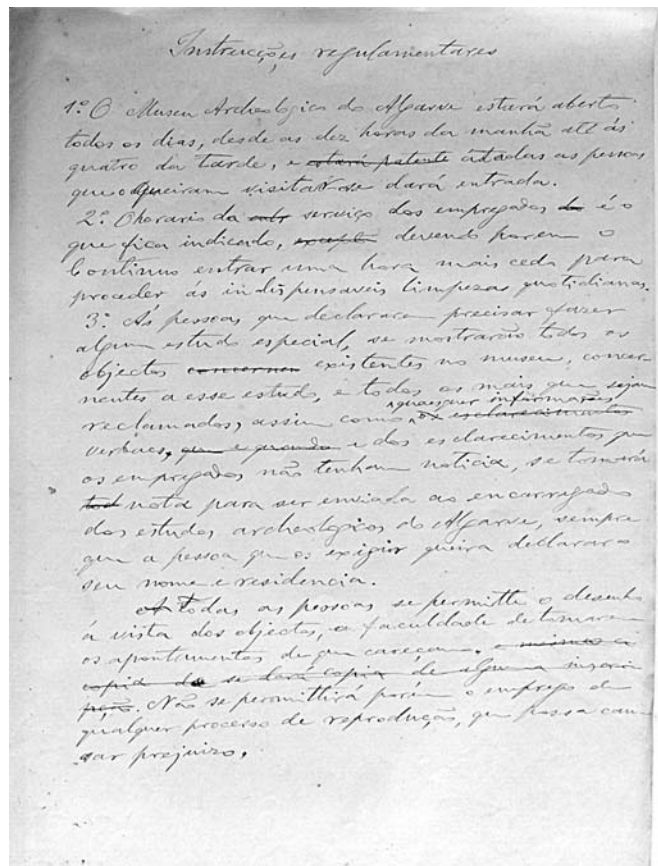 Instrucções regulamentares
1.º O Museu Archeologico do Algarve estará aberto
todos os dias, desde as dez horas da manhã até ás
quatro da tarde, e estará patente a todas as pessoas
que o queiram visitar se dará entrada.
2.º O horario do serviço dos empregados é o
que fica indicado, excepto devendo porem o
Continuo entrar uma hora mais cedo para
proceder ás indispensaveis limpezas quotidianas.
3.º Ás pessoas que declararem precisar fazer
algum estudo especial, se mostrarão todos os
objectos concernen existentes no museu, concer-
nentes a esse estudo, e todos os mais que sejam
reclamados, assim como quaesquer informações os esclarecimentos
verbaes, que e quando e dos esclarecimentos que
os empregados não tenham noticia, se tomará
nota para ser enviada ao encarregado
dos estudos archeologicos do Algarve, sempre
que a pessoa que os exigir queira declarar o
seu nome e residencia.
A todas as pessoas se permitte o desenho
á vista dos objectos, a faculdade de tomarem
os apontamentos de que careçam. e mesmo a
copia de se dará copia de alguma inscri
pção. Não se permittirá porém o emprego de
qualquer processo de reproducção, que possa cau
sar prejuizo.